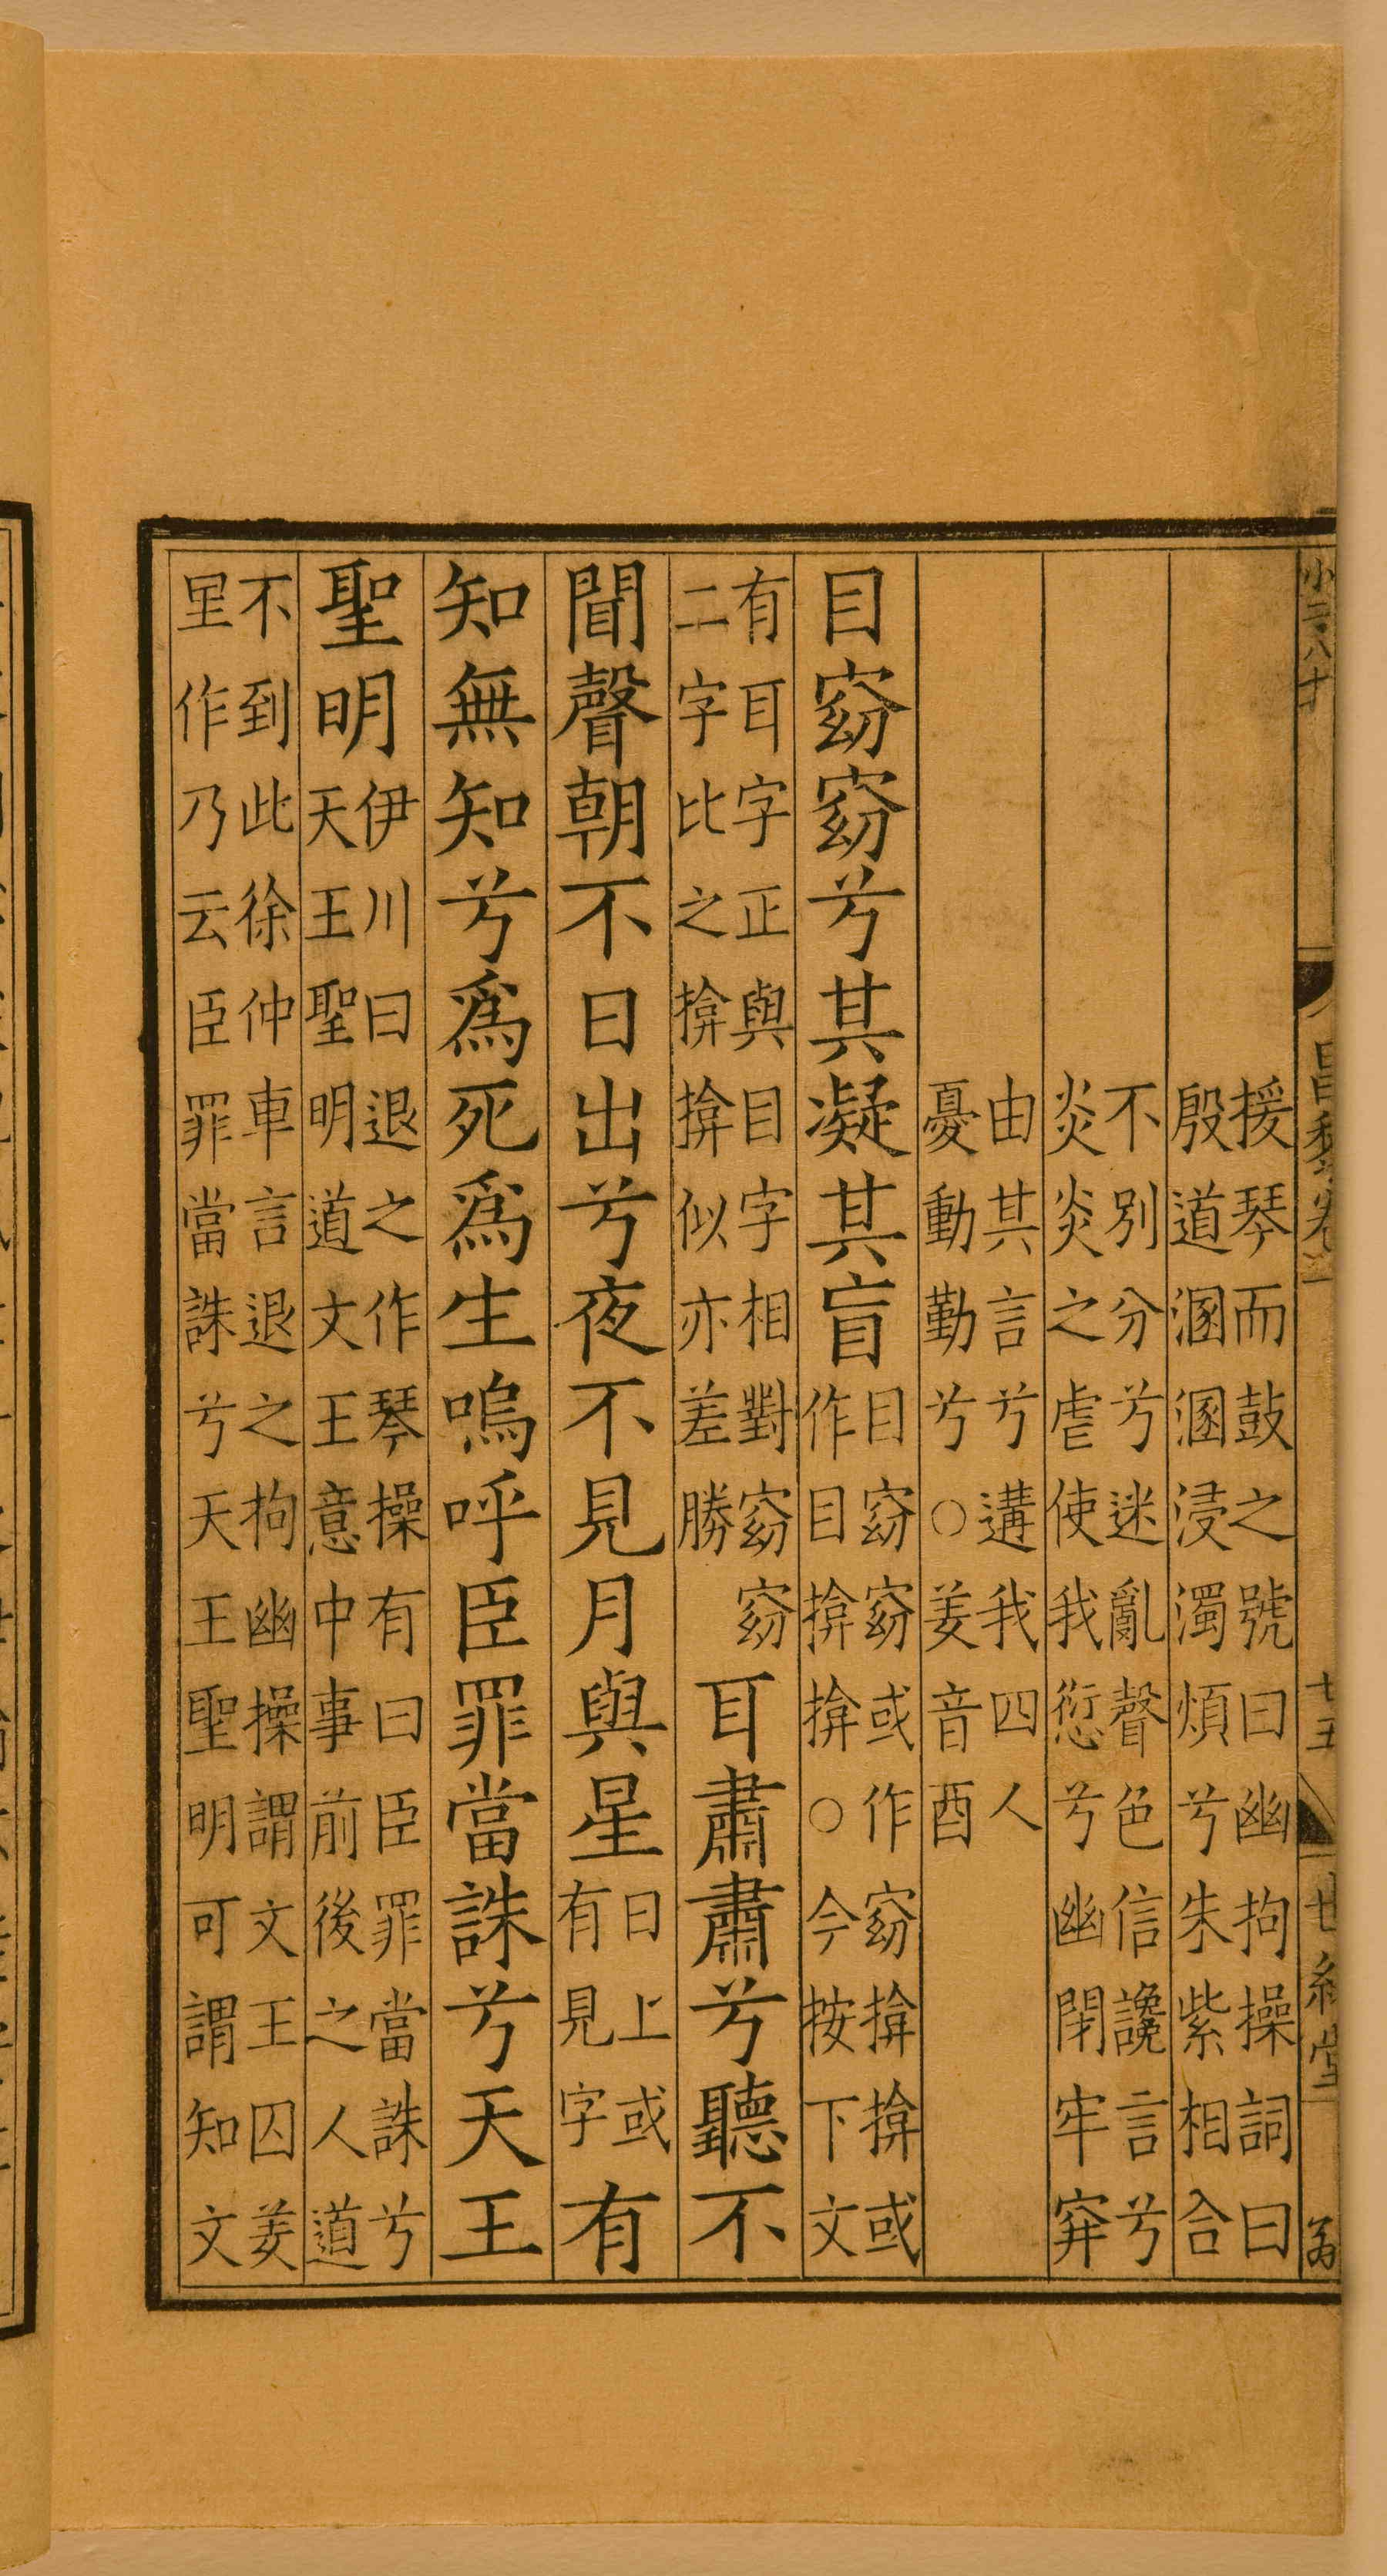 援琴而鼓之號曰幽拘操詞曰
殷道溷溷浸濁煩兮朱紫相合
不別分兮迷亂聲色信讒言兮
炎炎之虐使我愆兮幽閉牢穽
由其言兮遘我四人
憂動勤兮○姜音酉
目窈窈兮其凝其盲
目窈窈或作窈揜揜或
作目揜揜○今按下文
有耳字正與目字相對窈窈
二字比之揜揜似亦差勝
耳肅肅兮聽不
聞聲朝不日出兮夜不見月與星
日上或
有見字
有
知無知兮爲死爲生嗚呼臣罪當誅兮天王
聖明
伊川曰退之作琴操有曰臣罪當誅兮
天王聖明道文王意中事前後之人道
不到此徐仲車言退之拘幽操謂文王囚羑
里作乃云臣罪當誅兮天王聖明可謂知文
昌黎卷一
十五
世綵堂